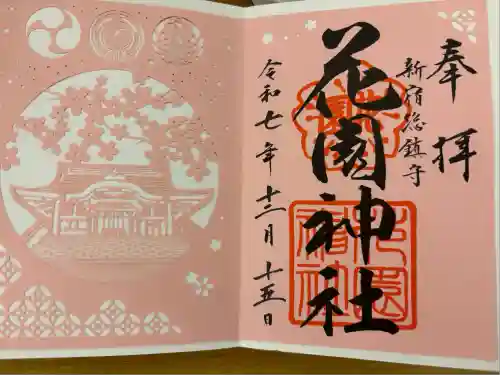 奉拝
新宿総鎮守
花園神社
令和七年十二月十五日
花園神社